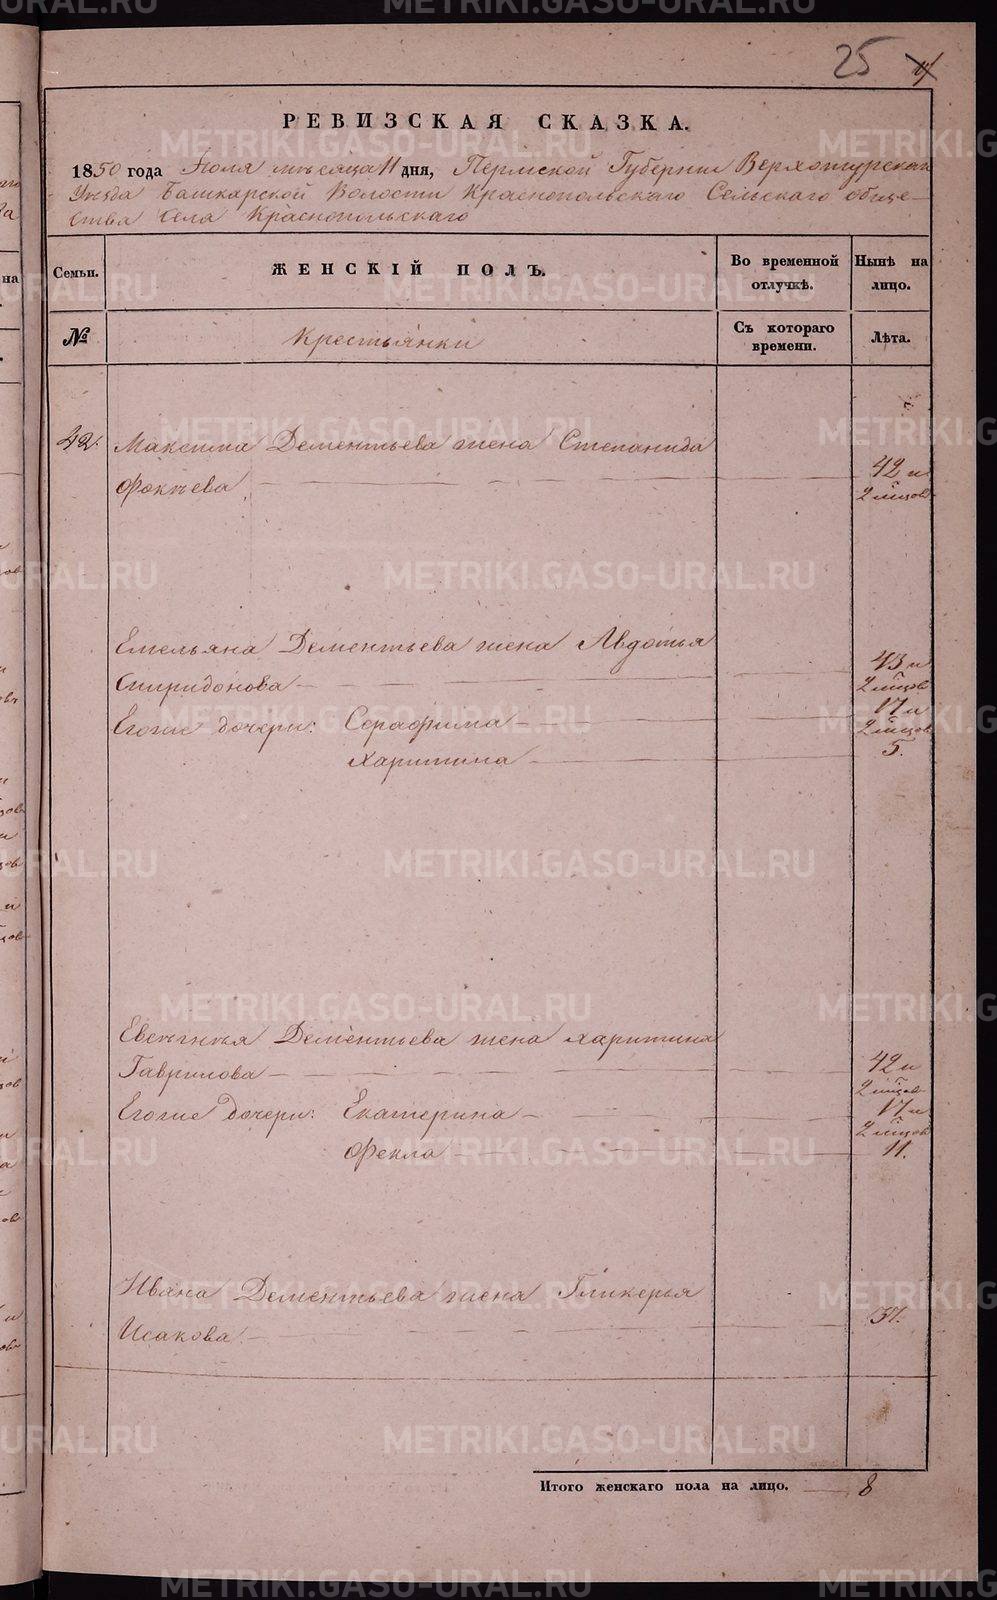 25
РЕВИЗСКАЯ СКАЗКА.
1850 года Июля месяца 11 дня, Пермской Губернии Верхотурскаго
Уезда Башкарской Волости Краснопольскаго Сельскаго обще-
ства Села Краснопольскаго
Семьи. ЖЕНСКІЙ ПОЛЪ. Во временной отлучкѣ. Нынѣ на лицо.
№ Крестьянки Съ котораго времени. Лѣта.
42. Максима Дементьева жена Степанида
Фокѣева 42 и
2 мѣсцов
Емельяна Дементьева жена Авдотья
Спиридонова 43 и
2 мѣсцов
Егожѐ дочери: Серафима 17 и
2 мѣсцов
Харитина 5.
Евсѣгнѣя Дементьева жена Харитина
Гаврилова 42 и
2 мѣсцов
Егоже дочери: Екатерина 17 и
2 мѣсцов
Фекла 11.
Ивана Дементьева жена Гликерья
Исакова 37.
Итого женскаго пола на лицо. 8
METRIKI.GASO-URAL.RU